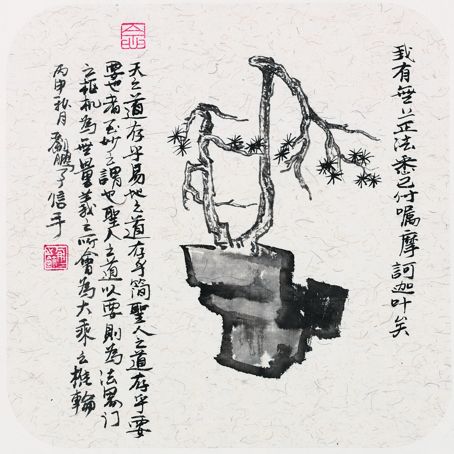 我有無上正法悉已付囑摩訶迦叶矣
天之道存乎易地之道存乎简聖人之道存乎要
要也者至妙之謂也聖人之道以要則為法界门
之樞机為無量義之所會為大乘之椎輪
丙申秋月顧鵬信手